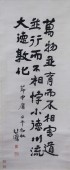 萬物並育而不相害道
並行而不相悖小德川流
大德敦化
節中庸